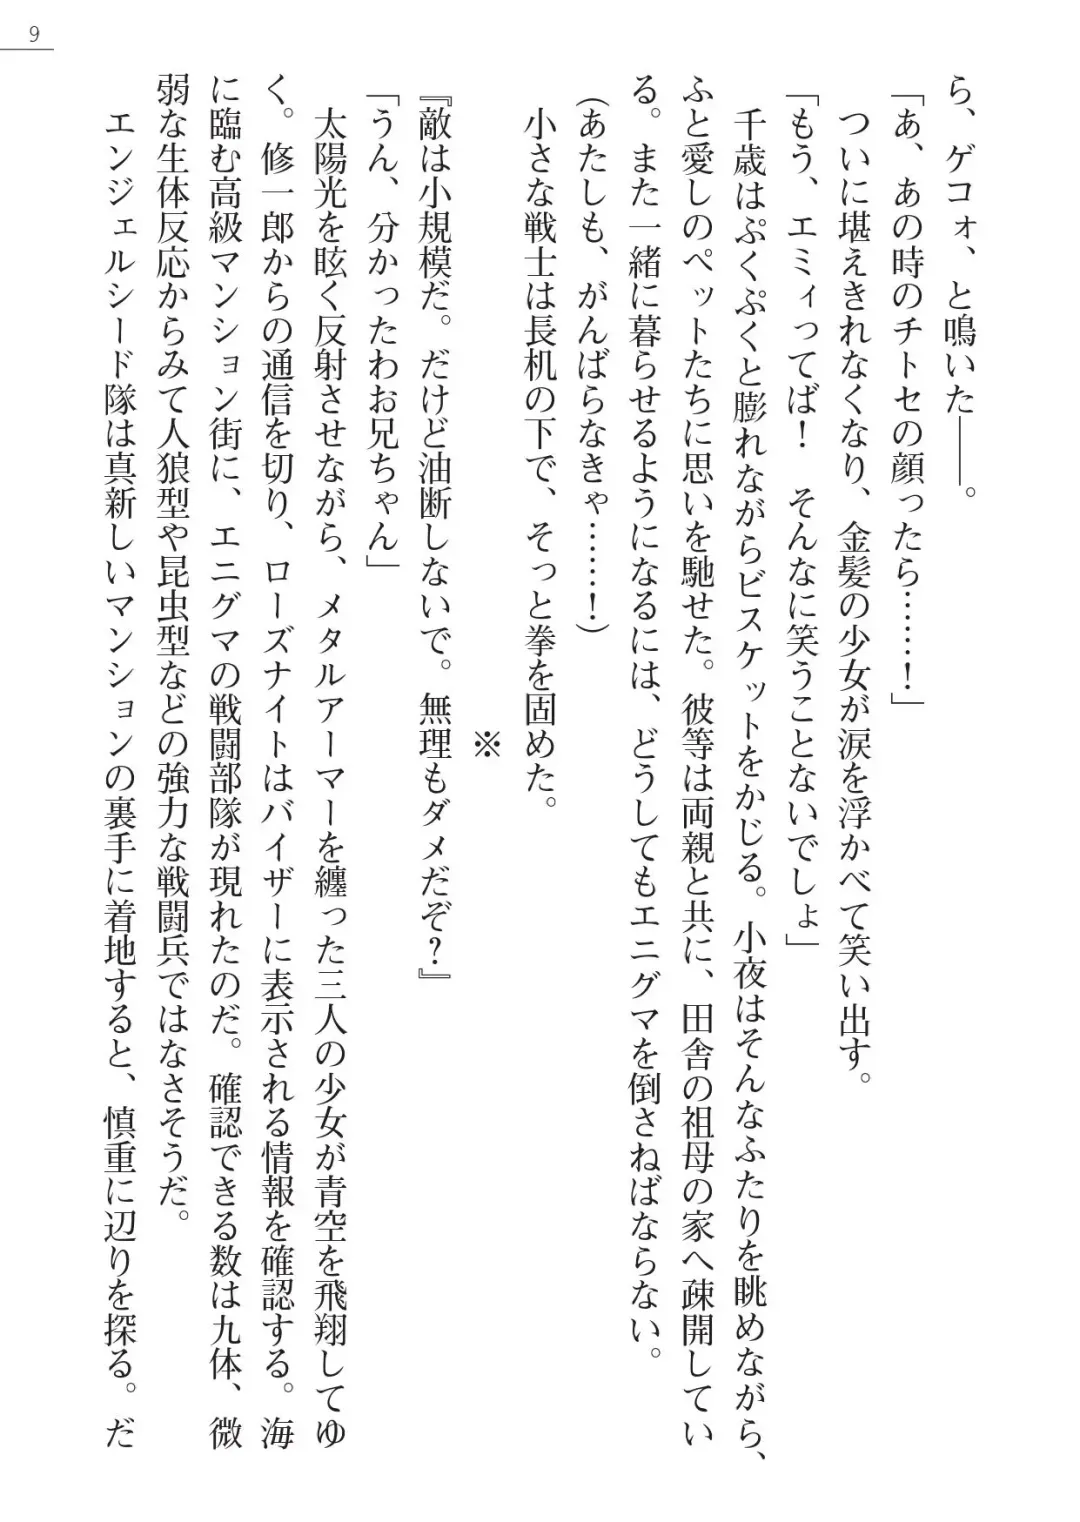 9
ら、ゲコォ、と鳴いた――。
「あ、あの時のチトセの顔ったら……！」
ついに堪えきれなくなり、金髪の少女が涙を浮かべて笑い出す。
「もう、エミィってば！　そんなに笑うことないでしょ」
千歳はぷくぷくと膨れながらビスケットをかじる。小夜はそんなふたりを眺めながら、
ふと愛しのペットたちに思いを馳せた。彼等は両親と共に、田舎の祖母の家へ疎開してい
る。また一緒に暮らせるようになるには、どうしてもエニグマを倒さねばならない。
（あたしも、がんばらなきゃ……！）
小さな戦士は長机の下で、そっと拳を固めた。
※
『敵は小規模だ。だけど油断しないで。無理もダメだぞ？』
「うん、分かったわお兄ちゃん」
太陽光を眩く反射させながら、メタルアーマーを纏った三人の少女が青空を飛翔してゆ
く。修一郎からの通信を切り、ローズナイトはバイザーに表示される情報を確認する。海
に臨む高級マンション街に、エニグマの戦闘部隊が現れたのだ。確認できる数は九体、微
弱な生体反応からみて人狼型や昆虫型などの強力な戦闘兵ではなさそうだ。
エンジェルシード隊は真新しいマンションの裏手に着地すると、慎重に辺りを探る。だ